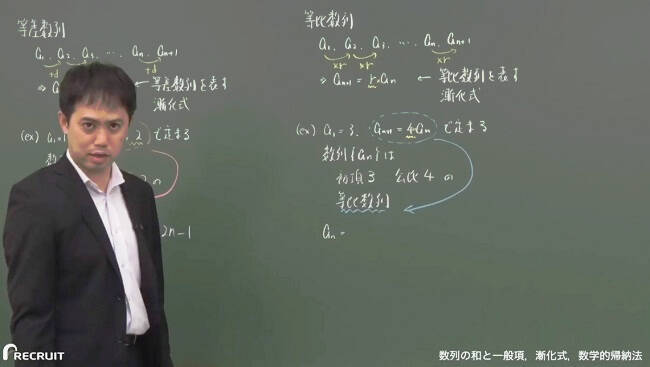 等差数列
a₁, a₂, a₃, … aₙ, aₙ₊₁
+d +d
← 等差数列を表す
漸化式
(ex) a₁=1
2 で定まる
2n-1
等比数列
a₁, a₂, a₃, … aₙ, aₙ₊₁
×r ×r ×r
⇒ aₙ₊₁ = r・aₙ ← 等比数列を表す
漸化式
(ex) a₁=3, aₙ₊₁=4aₙ で定まる
数列{aₙ}は
初項3 公比4の
等比数列
aₙ =
RECRUIT
数列の和と一般項，漸化式，数学的帰納法